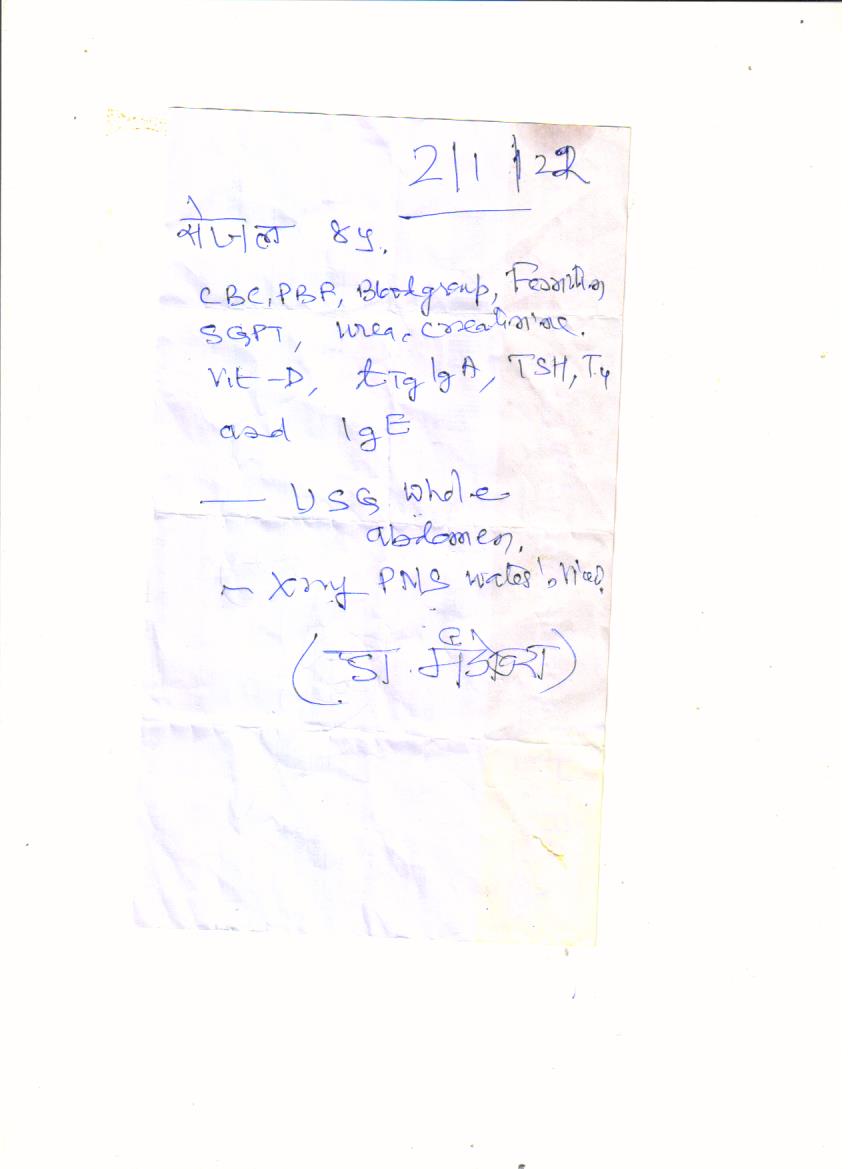 2/1/22
सेजल 8y.
CBC, PBF, Bloodgroup, Ferritin
SGPT, urea, creatinine.
Vit-D, tTg IgA, TSH, T4
and IgE
— USG whole
abdomen.
- Xray PNS water's view
(डा